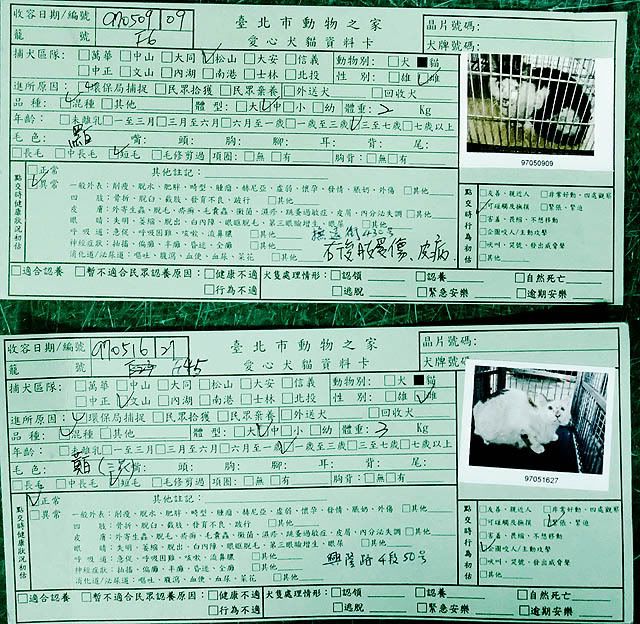 收容日期/編號 970509 09 臺北市動物之家 晶片號碼:
籠 號 F6 愛心犬貓資料卡 犬牌號碼:
捕犬區隊: □萬華□中山□大同☑松山□大安□信義 動物別: □犬■貓
□中正□文山□內湖□南港□士林□北投 性 別: □雄☑雌
進所原因: ☑環保局捕捉□民眾拾獲□民眾棄養□外送犬 □回收犬
品 種: ☑混種□其他 體 型: □大☑中□小□幼 體重: 2 Kg
年齡: □未離乳□一至三月□三至六月□六月至一歲□一歲至三歲☑三至七歲□七歲以上
毛 色: 嘴: 頭: 胸: 腳: 耳: 背: 尾:
□長毛□中長毛☑短毛□毛修剪過 項圈: □無□有 胸背: □無□有
97050909
點交時健康狀況初估
□正常 其他註記:
☑異常 一般外表: 削瘦、脫水、肥胖、畸型、腫瘤、赫尼亞、虛弱、懷孕、發情、脹奶、外傷 □其他
四 肢: 骨折、脫臼、截肢、發育不良、跛行 □其他
皮 膚: 外寄生蟲、脫毛、疥癬、毛囊蟲、黴菌、濕疹、跳蚤過敏症、皮屑、內分泌失調 □其他
眼 睛: 失明、萎縮、脫出、白內障、眼眶脫毛、第三眼瞼增生、眼屎 □其他
呼 吸 道: 急促、呼吸困難、咳嗽、流鼻膿 □其他
神經症狀: 抽搐、偏癱、半癱、昏迷、全癱 □其他
消化道/泌尿道: 嘔吐、腹瀉、血便、血尿、菜花 □其他
430號
右後肢咬傷、皮病
點交時行為初估
□友善、親近人 □非常好動、四處觀察
☑可碰觸及撫摸 □緊張、緊迫
□害羞、畏縮、不想移動
□企圖咬人/主動攻擊
□吠叫、哭號、發出威脅聲
□其他
□適合認養 □暫不適合民眾認養原因: □健康不適 犬隻處理情形: □認領 □認養 □自然死亡
□行為不適 □逃脫 □緊急安樂 □逾期安樂
收容日期/編號 970516 27 臺北市動物之家 晶片號碼:
籠 號 愛心犬貓資料卡 犬牌號碼:
捕犬區隊: □萬華□中山□大同□松山□大安□信義 動物別: □犬■貓
□中正☑文山□內湖□南港□士林□北投 性 別: □雄☑雌
進所原因: ☑環保局捕捉□民眾拾獲□民眾棄養□外送犬 □回收犬
品 種: ☑混種□其他 體 型: □大☑中□小□幼 體重: 3 Kg
年齡: □未離乳□一至三月□三至六月□六月至一歲☑一歲至三歲□三至七歲□七歲以上
毛 色: 嘴: 頭: 胸: 腳: 耳: 背: 尾:
□長毛□中長毛☑短毛□毛修剪過 項圈: □無□有 胸背: □無□有
97051627
點交時健康狀況初估
☑正常 其他註記:
□異常 一般外表: 削瘦、脫水、肥胖、畸型、腫瘤、赫尼亞、虛弱、懷孕、發情、脹奶、外傷 □其他
四 肢: 骨折、脫臼、截肢、發育不良、跛行 □其他
皮 膚: 外寄生蟲、脫毛、疥癬、毛囊蟲、黴菌、濕疹、跳蚤過敏症、皮屑、內分泌失調 □其他
眼 睛: 失明、萎縮、脫出、白內障、眼眶脫毛、第三眼瞼增生、眼屎 □其他
呼 吸 道: 急促、呼吸困難、咳嗽、流鼻膿 □其他
神經症狀: 抽搐、偏癱、半癱、昏迷、全癱 □其他
消化道/泌尿道: 嘔吐、腹瀉、血便、血尿、菜花 □其他
興隆路4段50号
點交時行為初估
□友善、親近人 □非常好動、四處觀察
□可碰觸及撫摸 ☑緊張、緊迫
□害羞、畏縮、不想移動
☑企圖咬人/主動攻擊
□吠叫、哭號、發出威脅聲
□其他
□適合認養 □暫不適合民眾認養原因: □健康不適 犬隻處理情形: □認領 □認養 □自然死亡
□行為不適 □逃脫 □緊急安樂 □逾期安樂